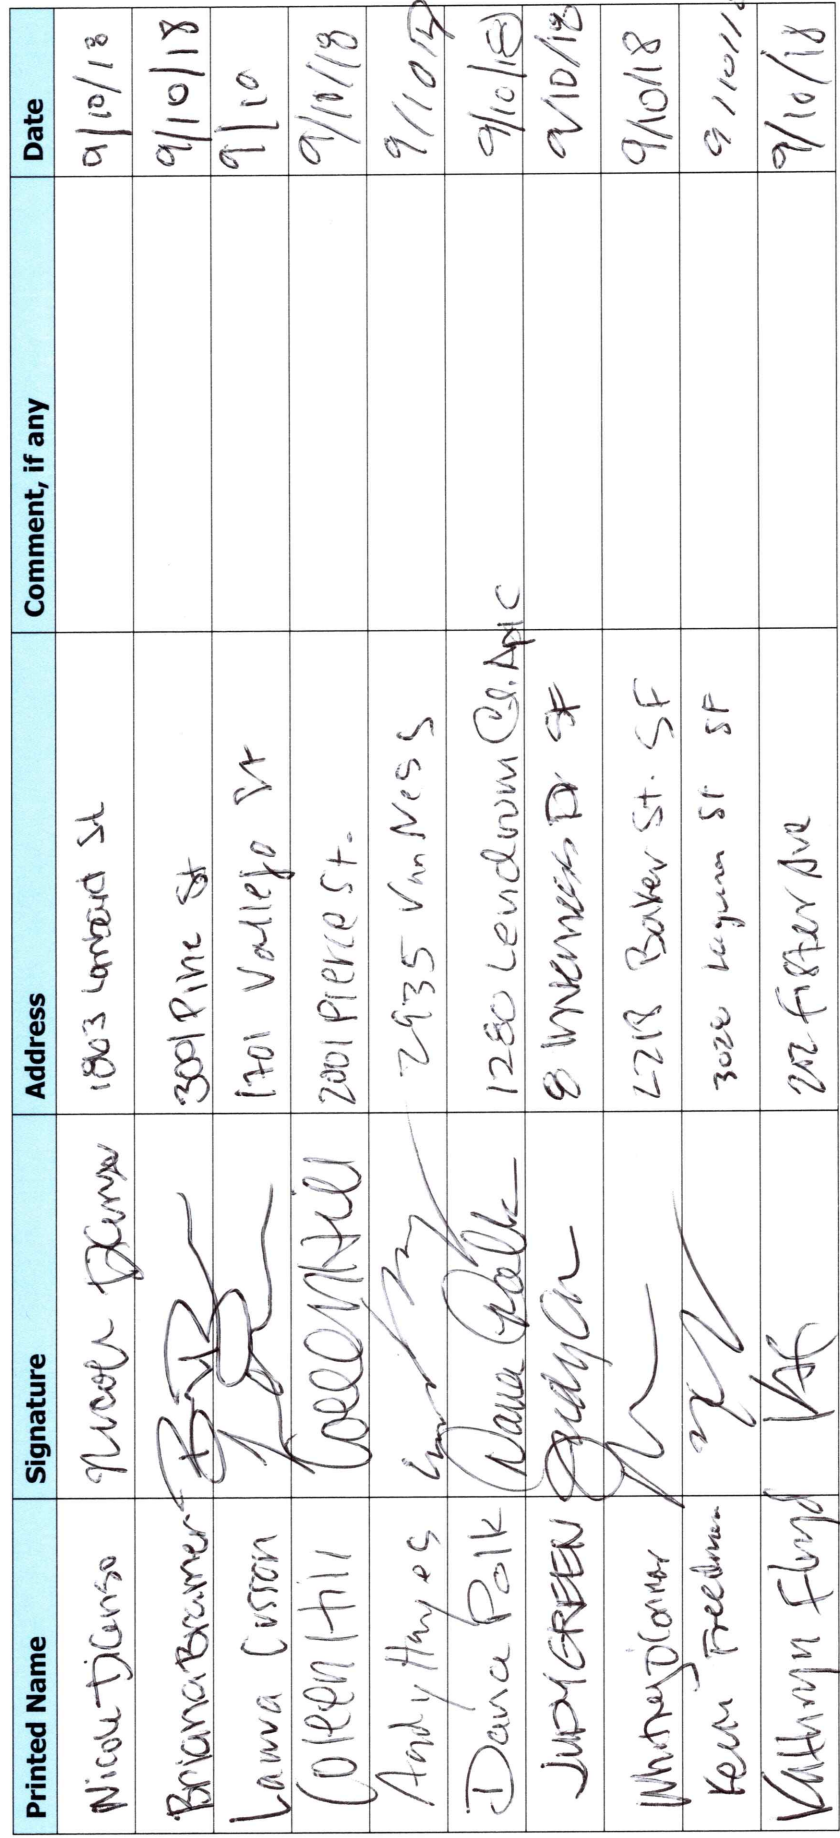 Printed Name Signature Address Comment, if any Date
Nicole DiCenso Nicole DiCenso 1863 Lombard St 9/10/18
Briana Bramer 3001 Pine St 9/10/18
Laura Cusson 1701 Vallejo St 9/10
Coleen Hill Coleen Hill 2001 Pierce St. 9/10/18
Andy Hayes 2935 Van Ness 9/10/18
Dana Polk Dana Polk 1280 Ct. Apt C 9/10/18
JUDY GREEN 8 Inverness Dr SF 9/10/18
Whitney O'Connor Baker St. SF 9/10/18
Freedman Laguna St SF 9/10/18
Kathryn Floyd KAF Ave 9/10/18